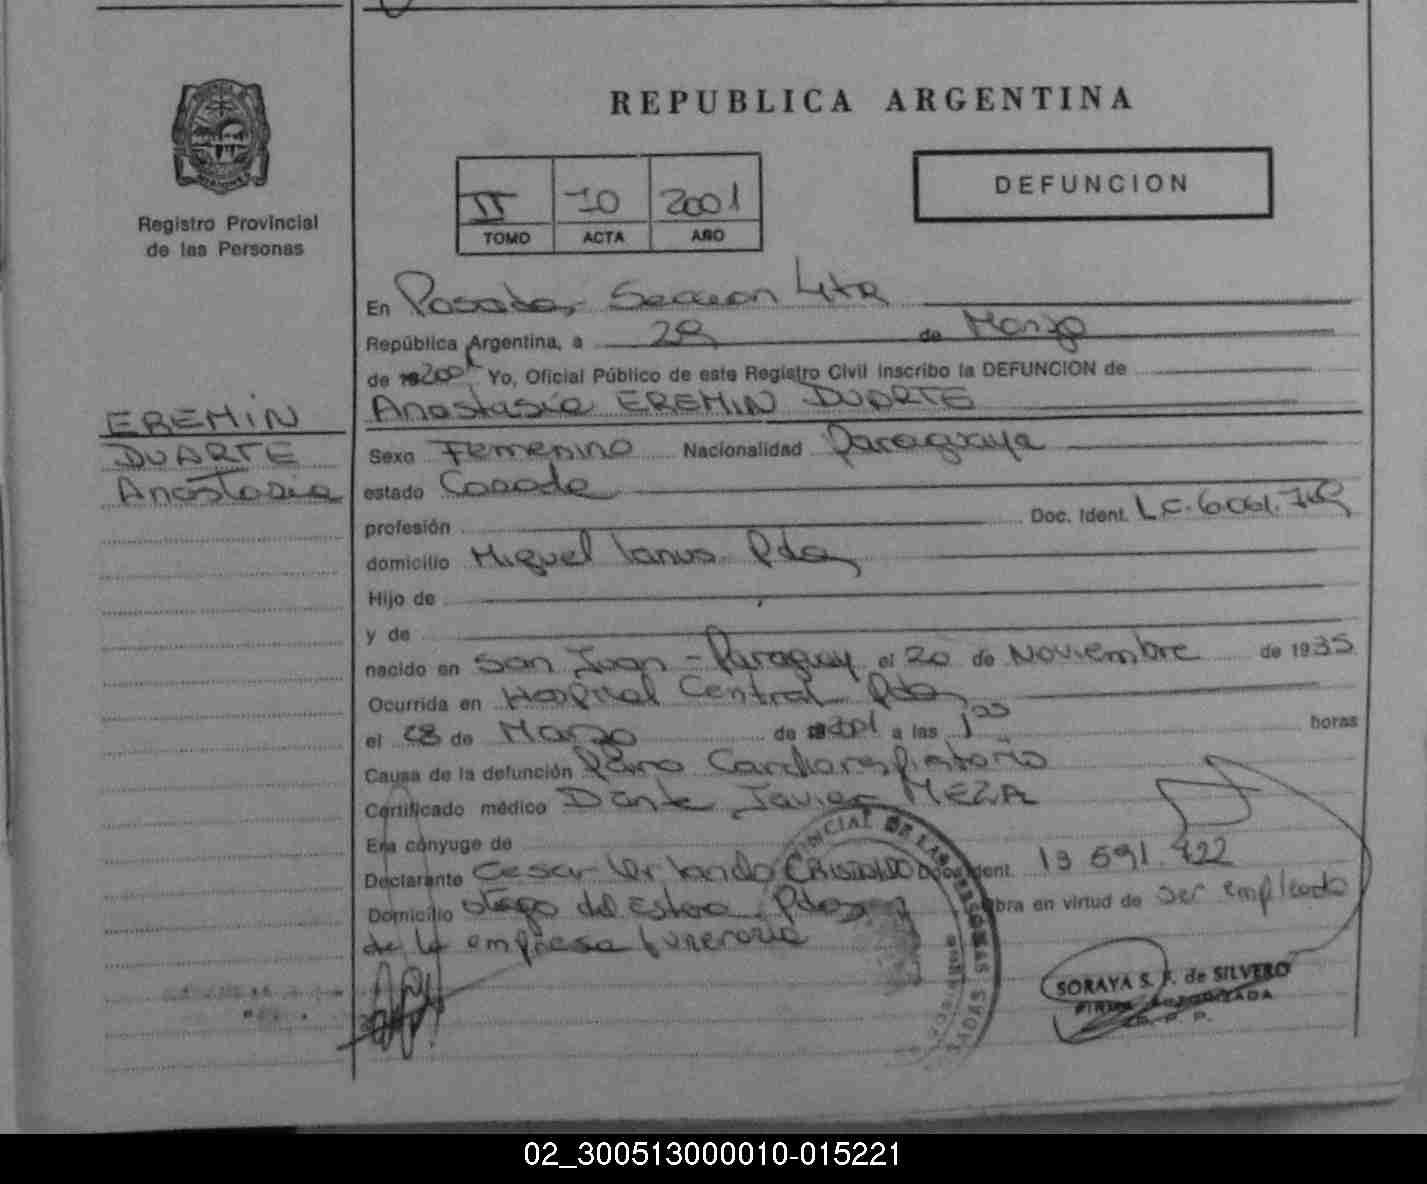 REPUBLICA ARGENTINA
DEFUNCION
II 10 2001
TOMO ACTA AÑO
Registro Provincial
de las Personas
EREMIN
DUARTE
Anastasia
En Posadas, Seccion 4ta
República Argentina, a 29 de Marzo
de 2001 Yo, Oficial Público de este Registro Civil inscribo la DEFUNCION de
Anastasia EREMIN DUARTE
Sexo Femenino Nacionalidad Paraguaya
estado Casada
profesión Doc. Ident. L.C. 6.061.
domicilio Miguel Lanus. Pdas
Hijo de
y de
nacido en San Juan - Paraguay el 20 de Noviembre de 1935
Ocurrida en Hospital Central Pdas,
el 28 de Marzo de 2001 a las 1 00 horas
Causa de la defunción Paro Cardiorespiratorio
Certificado médico Dante Javier MEZA
Era cónyuge de
Declarante Cesar CRISTALDO Doc. Ident. 13 691.422
Domicilio del Estero. Pdas Obra en virtud de ser empleado
de la empresa funeraria
SORAYA S. F. de SILVERO
FIRMA AUTORIZADA
R. P. P.
02_300513000010-015221